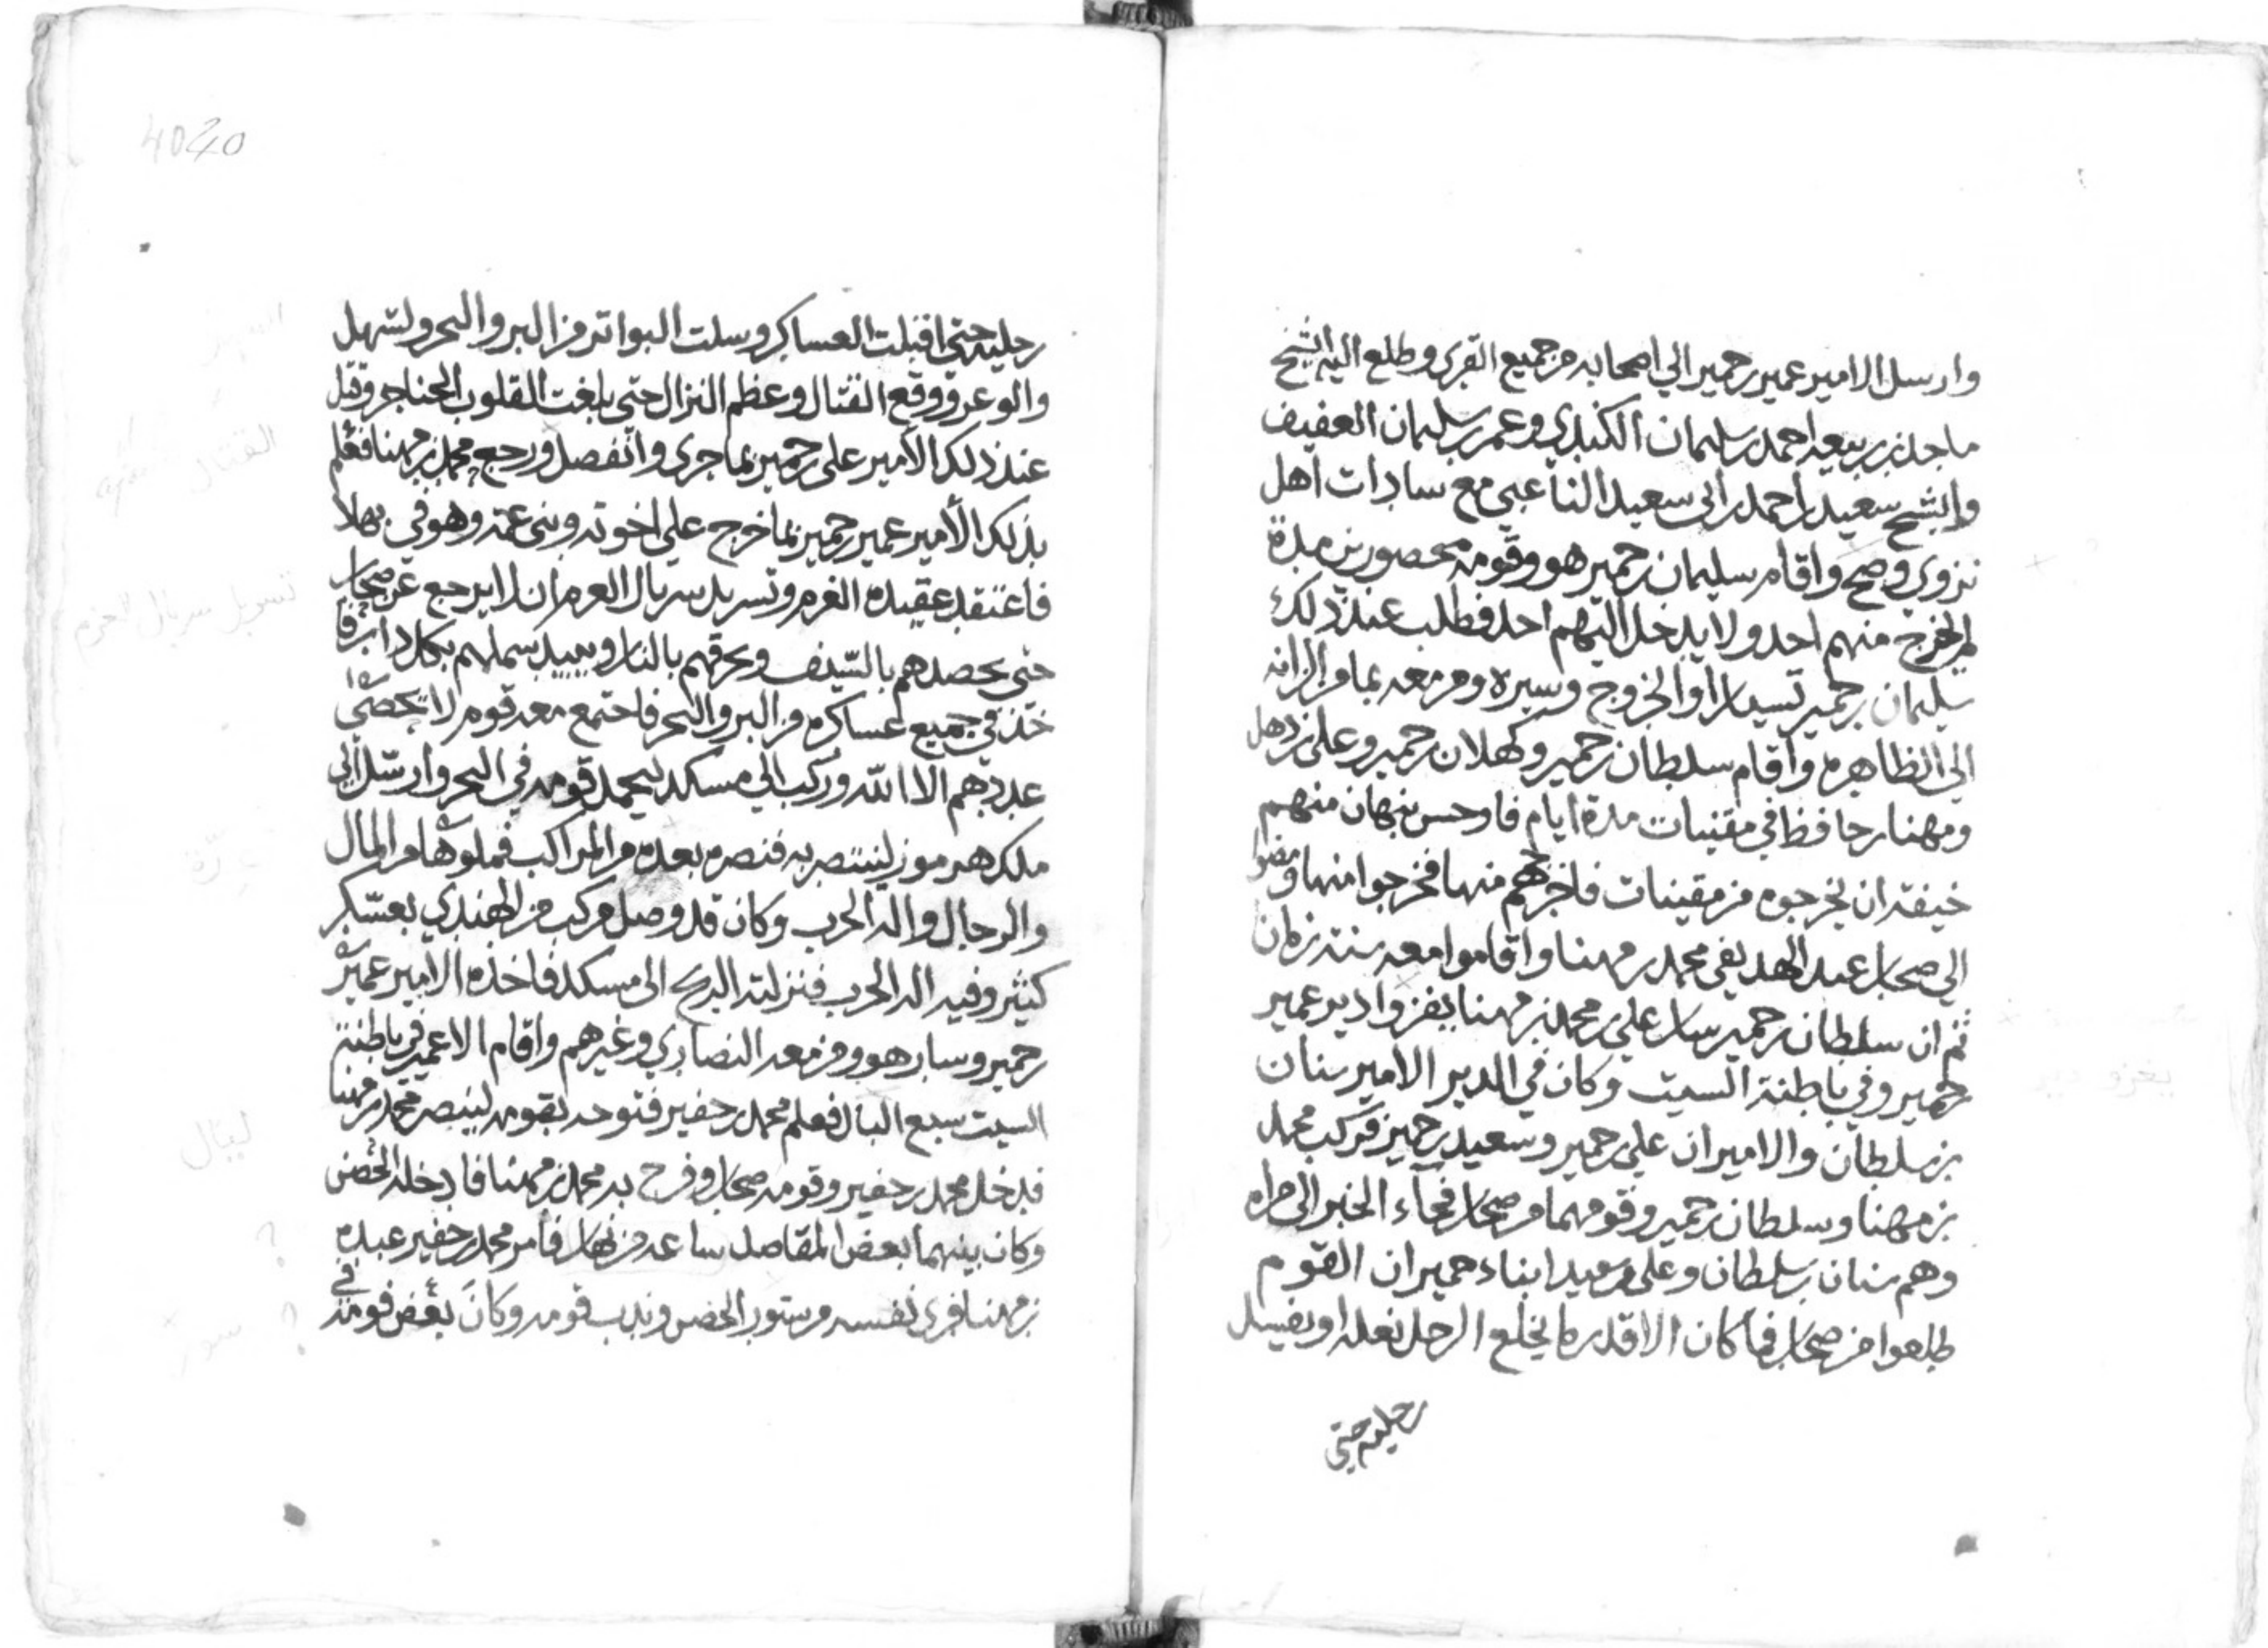 وارسل الامير عمير بن حمير الي اصحابه من جميع القرى وطلع اليه الشيخ
ماجد بن ربيعه احمد بن سليمان الكندي وعمر بن سليمان العفيف
والشيخ سعيد بن احمد بن ابي سعيد الناعبي مع سادات اهل
نزوي ومنح واقام سليمان بن حمير هو وقومه محصورين مدة
لم يخرج منهم احد ولا يدخل اليهم احد فطلب عند ذلك
سليمان بن حمير تسيارا او الخروج وسيره ومن معه بما من الزانه
الي الظاهره واقام سلطان بن حمير وكهلان بن حمير وعلي بن ذهل
ومهنا بن حافظ في مقنيات مدة ايام فاوحس نبهان منهم
خيفة ان يخرجوه من مقينات فاخرجهم منها فخرجوا منها ومضوا
الي صحار عبد الهديفي محمد بن مهنا واقاموا معه سنة زمان
ثم ان سلطان بن حمير سار علي محمد بن مهنا يغزوا دير عمير
بن حمير وفي باطنة السيت وكان في الدير الامير سنان
بن سلطان والاميران علي بن حمير وسعيد بن حمير فركب محمد
بن مهنا وسلطان بن حمير وقومهما من صحار فجاء الخبر الي مراه
وهم سنان بن سلطان وعلي وسعيد ابناء حمير ان القوم
طلعوا من صحار فما كان الا قدر ما يخلع الرجل نعله او يغسل
رجليه حتي
4020
رجليه حتي اقبلت العساكر وسلت البواتر من البر والبحر والسهل
والوعر ووقع القتال وعظم النزال حتي بلغت القلوب الحناجر وقتل
عند ذلك الأمير علي بن حمير بما جري وانفصل ورجع محمد بن مهنا فعلم
بذلك الأمير عمير بن حمير بما خرج علي اخوته وبني عمه وهو في بهلا
فاعتقد عقيدة الغرم وتسربل سربال العرم ان لا يرجع عن صحار
حتي يحصدهم بالسيف ويحرقهم بالنار ويبيد شملهم بكل دابر فا
خذ في جميع عساكره من البر والبحر فاجتمع معه قوم لا تحصي
عددهم الا الله وركب الي مسكد ليحمل قومه في البحر وارسل الي
ملك هرموز لينتصر به فنصره بعده من المراكب فملوها من المال
والرجال والة الحرب وكان قد وصل مركب من الهندي بعسكر
كثير وفيه الة الحرب فنزلته الريح الي مسكد فاخذه الامير عمير
بن حمير وسار هو ومن معه النصاري وغيرهم واقام الا عمير في باطنة
السيت سبع اليال فعلم محمد بن جفير فتوجه بقومه لينصر محمد بن مهنا
فدخل محمد بن جفير وقومه صحار وفرح به محمد بن مهنا فادخله الحصن
وكان بينهما بعض المقاصد ساعه من نهار فأمر محمد بن جفير عبده
بن مهنا فرى نفسه من سور الحصن وندب قومه وكان بعض قومه في
القتال
تسربل سربال العزم
ليال
؟
؟ سور